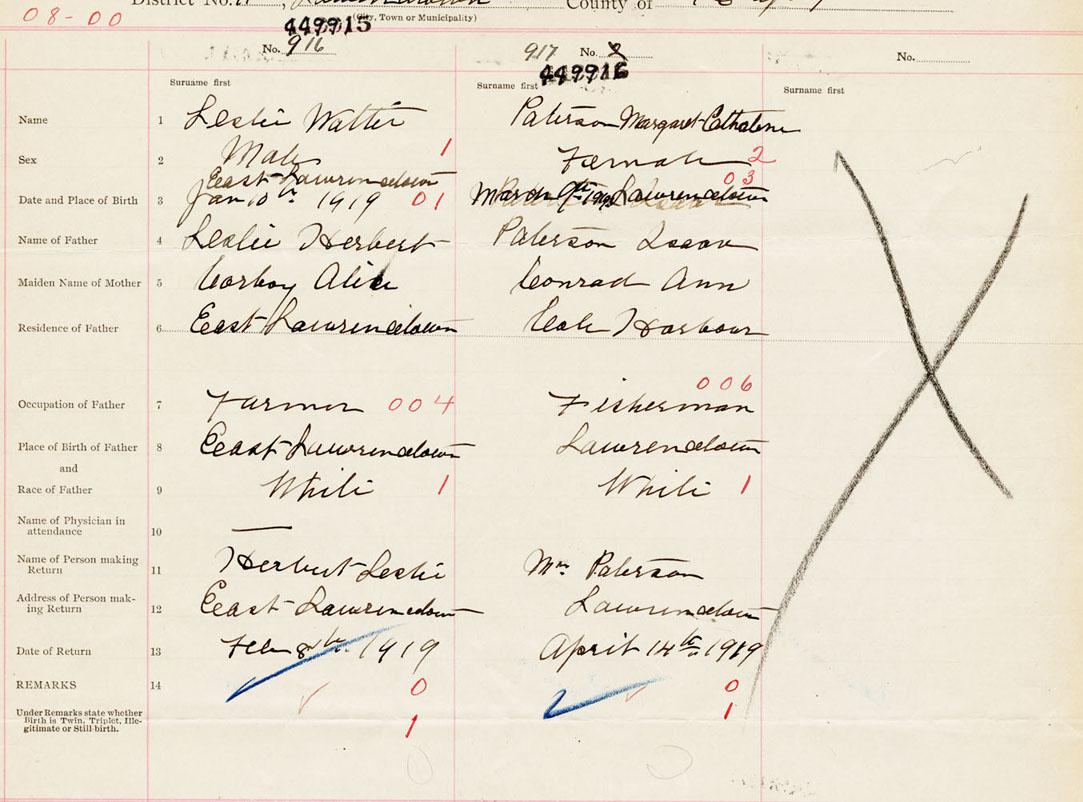 District No. 
County of
08-00
(City, Town or Municipality)
449915
No. 916
917 No.
449916
No.
Surname first
Surname first
Surname first
Name 1 Leslie Walter Paterson Margaret Cathalene
Sex 2 Male 1 Female 2
East Lawrencetown 03
Date and Place of Birth 3 Jan 10th 1919 01 March 9th 1919 Lawrencetown
Name of Father 4 Leslie Herbert Paterson Isaac
Maiden Name of Mother 5 Corboy Alice Conrad Ann
Residence of Father 6 East Lawrencetown Cole Harbour
006
Occupation of Father 7 Farmer 004 Fisherman
Place of Birth of Father 8 East Lawrencetown Lawrencetown
and
Race of Father 9 White 1 White 1
Name of Physician in
attendance 10 —
Name of Person making
Return 11 Herbert Leslie Mrs. Paterson
Address of Person mak-
ing Return 12 East Lawrencetown Lawrencetown
Date of Return 13 Feb 8th 1919 April 14th 1919
REMARKS 14 0 0
Under Remarks state whether
Birth is Twin, Triplet, Ille-
gitimate or Still-birth. 1 1